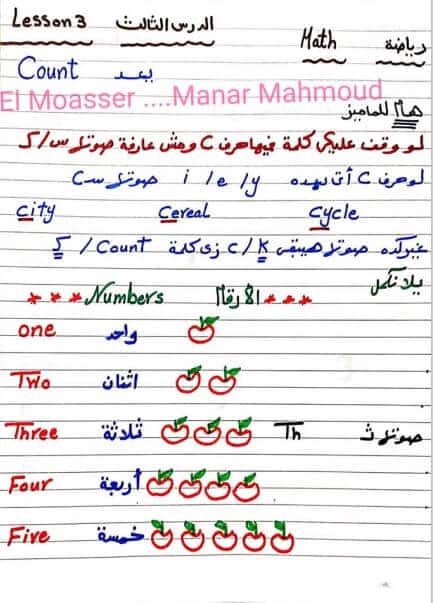 Lesson 3 الدرس الثالث Math رياضة
Count يعد
El Moasser ....Manar Mahmoud
هام للماميز
لو وقف عليكي كلمة فيها حرف C ومش عارفة صوتها س/ك
لو حرف C أتى بعده i / e / y صوتها س C
City Cereal Cycle
غير كده صوتها هيبقى c/k زي كلمة Count / ك
يلا نكمل
*** Numbers الأرقام ***
one واحد
Two اثنان
Three ثلاثة Th صوتها ث
Four أربعة
Five خمسة